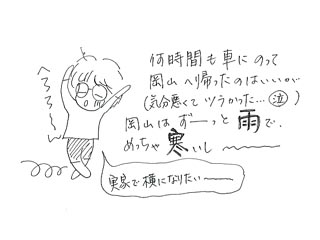 何時間も車にのって
岡山へ帰ったのはいいが
(気分悪くてツラかった…泣)
岡山はずーっと雨で、
めっちゃ寒いし〜
へろろ〜ん
実家で横になりたい〜